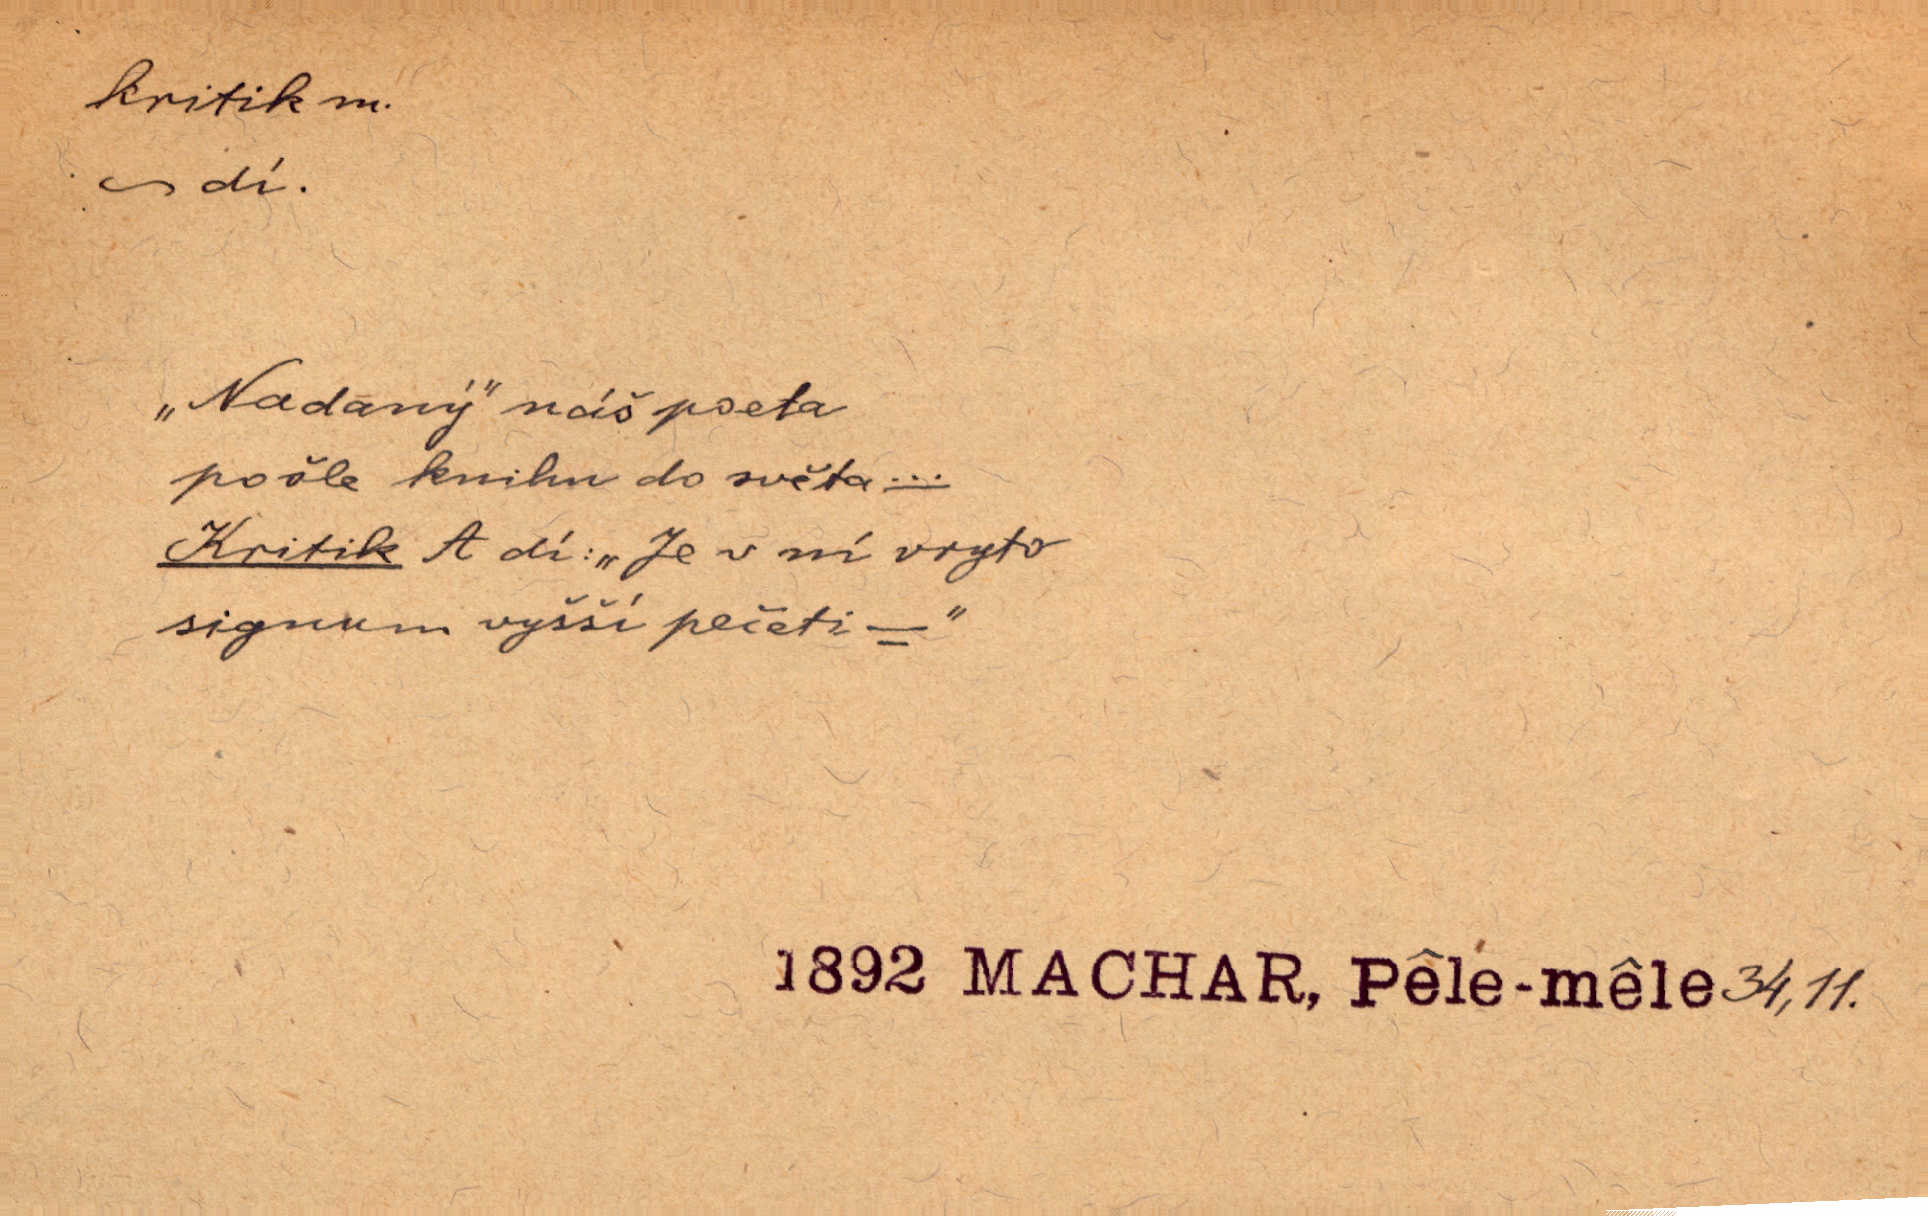 kritik m.
~ dí.
„Nadaný" náš poeta
pošle knihu do světa...
Kritik A dí: „Je v ní vryto
signum vyšší pečeti —"
1892 MACHAR, Pêle-mêle 34, 11.